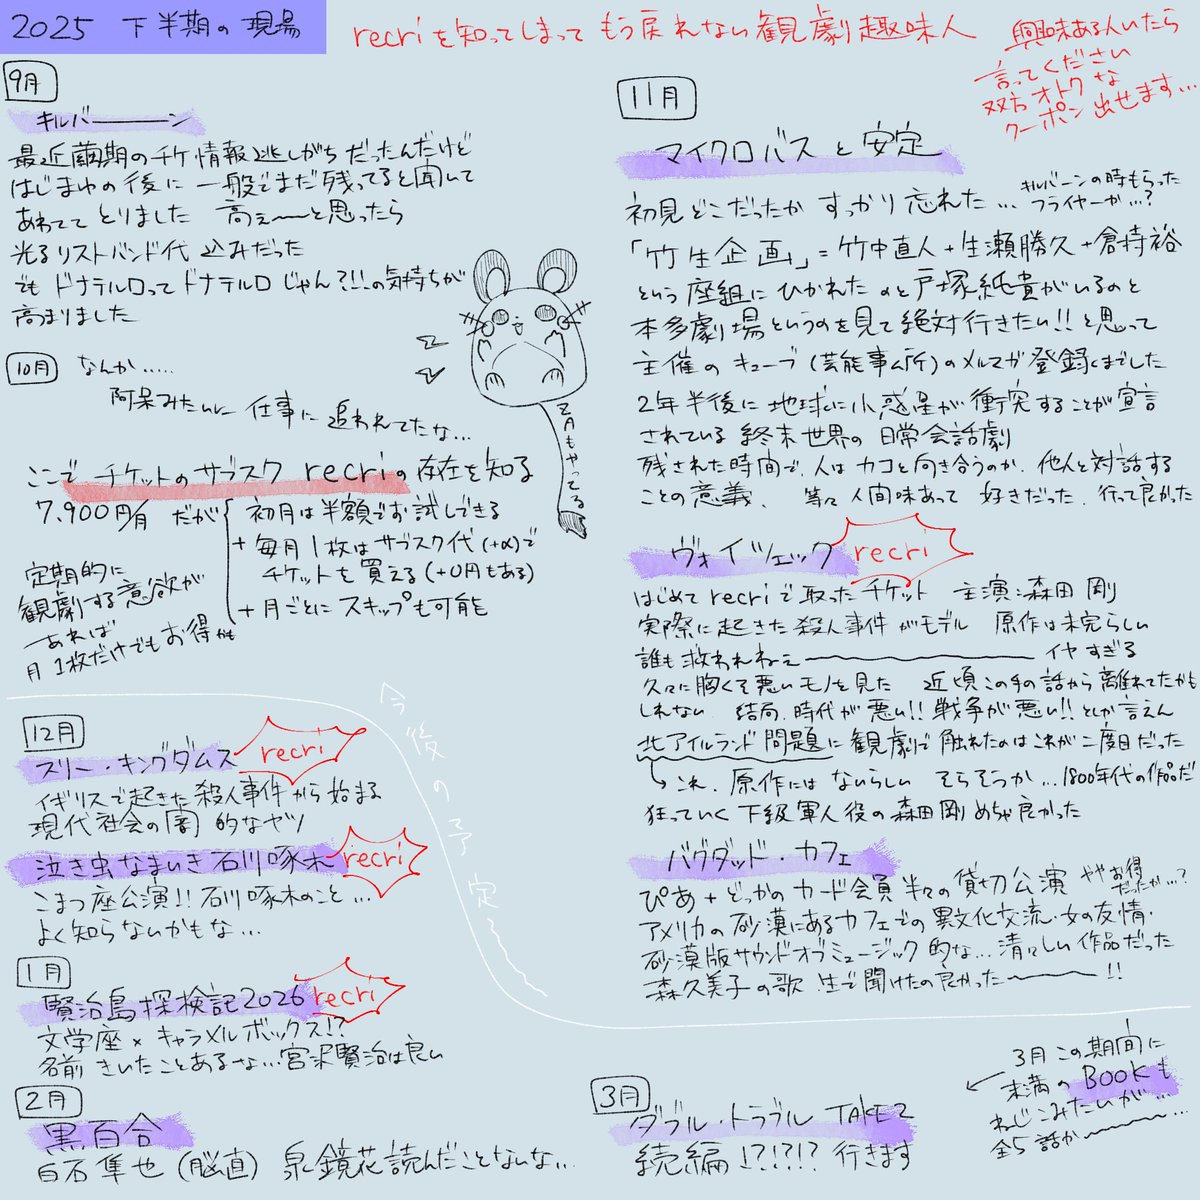 2025 下半期の現場
recriを知ってしまってもう戻れない観劇趣味人
興味ある人いたら
言ってください
双方オトクな
クーポン出せます…
9月
キルバーーーーン
最近繭期のチケ情報逃しがちだったんだけど
はじまりの後に一般でまだ残ってると聞いて
あわててとりました 高ぇ〜〜と思ったら
光るリストバンド代込みだった
でもドナテルロってドナテルロじゃん?!!の気持ちが
高まりました
ZAもやってる
10月
なんか.....
阿呆みたいに仕事に追われてたな…
ここでチケットのサブスクrecriの存在を知る
7,900円/月 だが
初月は半額でお試しできる
+毎月1枚はサブスク代(+α)で
チケットを買える(+0円もある)
+月ごとにスキップも可能
定期的に
観劇する意欲が
あれば
月1枚だけでもお得かも
11月
マイクロバスと安定
初見どこだったかすっかり忘れた…
キルバーンの時もらった
フライヤーか…?
「竹生企画」=竹中直人+生瀬勝久+倉持裕
という座組にひかれたのと戸塚純貴がいるのと
本多劇場というのを見て絶対行きたい!!と思って
主催のキューブ(芸能事ム所)のメルマガ登録までした
2年半後に地球に小惑星が衝突することが宣言
されている終末世界の日常会話劇
残された時間で、人はカコと向き合うのか、他人と対話する
ことの意義、等々人間味あって好きだった、行って良かった
ヴォイツェック
recri
はじめてrecriで取ったチケット 主演:森田剛
実際に起きた殺人事件がモデル 原作は未完らしい
誰も救われねえ〜〜〜〜イヤすぎる
久々に胸くそ悪いモノを見た 近頃この手の話から離れてたかも
しれない 結局、時代が悪い!!戦争が悪い!!としか言えん
北アイルランド問題に観劇で触れたのはこれが二度目だった
↳これ、原作にはないらしい そらそうか…1800年代の作品だ
狂っていく下級軍人役の森田剛めちゃ良かった
バグダッド・カフェ
ぴあ+どっかのカード会員半々の貸切公演
ややお得
だったか…?
アメリカの砂漠にあるカフェでの異文化交流・女の友情・
砂漠版サウンドオブミュージック的な…清々しい作品だった
森久美子の歌生で聞けたの良かった〜〜〜!!
今後の予定〜〜
12月
スリー・キングダムス
recri
イギリスで起きた殺人事件から始まる
現代社会の闇的なヤツ
泣き虫なまいき石川啄木
recri
こまつ座公演!!石川啄木のこと…
よく知らないかもな…
1月
賢治島探検記2026
recri
文学座×キャラメルボックス!?
名前きいたことあるな…宮沢賢治は良い
2月
黒百合
白石隼也(脳直) 泉鏡花読んだことないな…
3月
ダブル・トラブル TAKE2
続編!?!?!? 行きます
3月この期間に
←末満のBOOKも
ねじこみたいが…
全5話か〜〜〜…